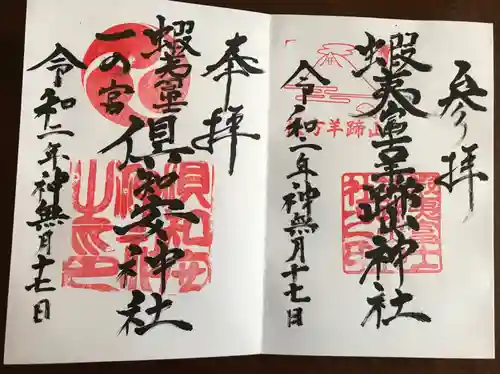 参り拝
蝦夷富士羊蹄神社
令和二年神無月十七日
奉拝
蝦夷富士
倶知安神社
一の宮
令和二年神無月十七日